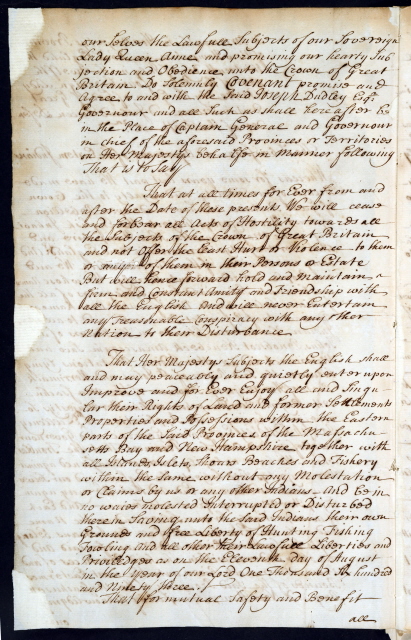 our Selves the Lawfull Subjects of our Sovereign
Lady Queen Anne and promising our hearty Sub
jection and Obedience unto the Crown of Great
Britain Do Solemnly Covenant promise and
Agree to and with the Said Joseph Dudley Esqr.
Governour and all Such as shall hereafter be
in the Place of Captain General and Governour
in chief of the aforesaid Provinces or Territories
on Her Majestys behalfe in Manner following
That is to Say
That at all times for Ever from and
after the Date of these presents We will cease
and forbear all Acts of Hostility towards all
the Subjects of the Crown of Great Britain
and not offer the least Hurt or Violence to them
or any of them in their Persons or Estate
But will hence forward hold and Maintain a
firm and Constant Amity and Friendship with
all the English and will never Entertain
any Treasonable Conspiracy with any other
Nation to their Disturbance
That Her Majestys Subjects the English shall
and may peaceably and quietly enter upon
Improve and for Ever Enjoy all and Singu
lar their Rights of Land and former Settlements
Properties and Possessions within the Eastern
parts of the Said Provinces of the Massachu
setts Bay and New Hampshire together with
all Islands, Islets, Shoars Beaches and Fishery
within the Same without any Molestation
or Claims by us or any other Indians And be in
no wares molested Interrupted or Disturbed
therein Saving unto the Said Indians their own
Grounds and free Liberty of Hunting Fishing
Fowling and all other their Lawfull Liberties and
Priviledges as on the Eleventh day of August
in the year of our Lord One Thousand Six hundred
and Ninety three.
That for mutual Safety and Benefit
all